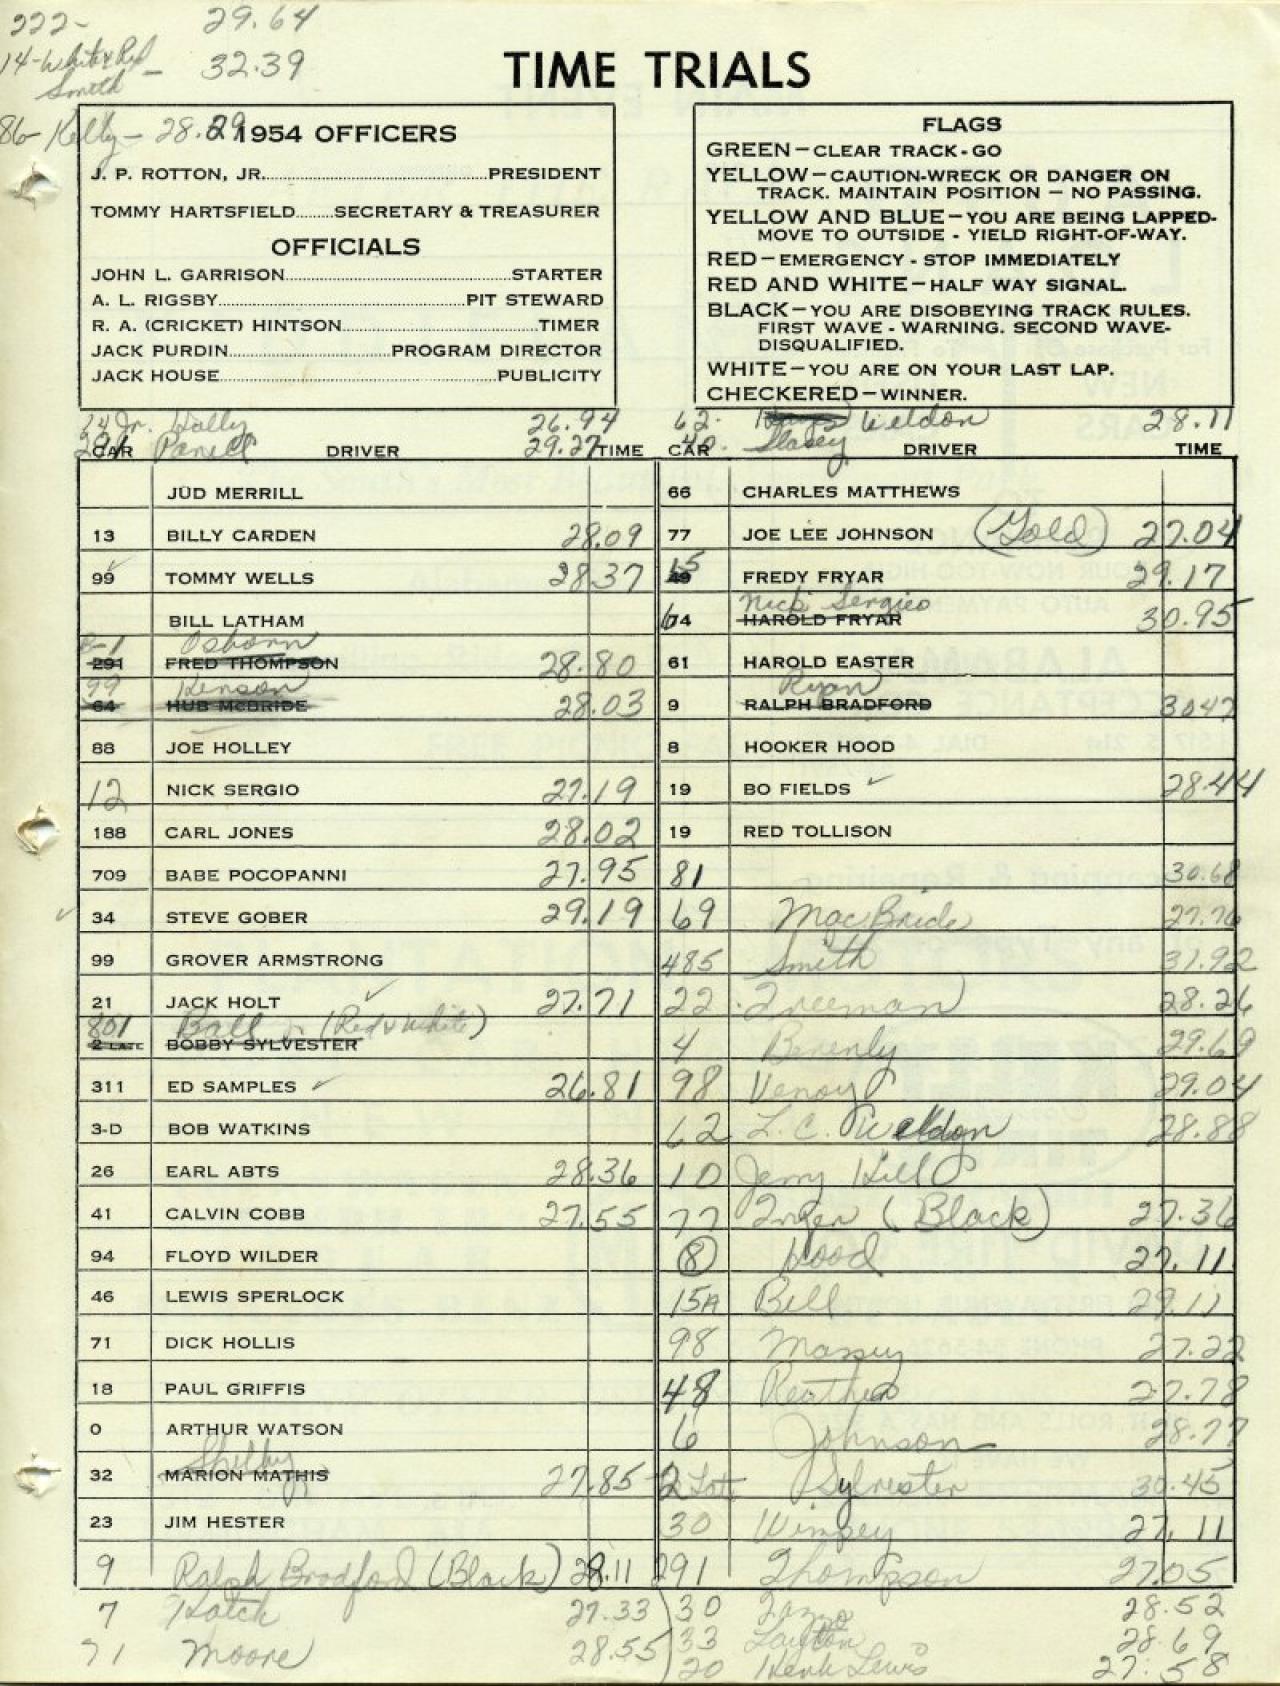 222- 29.64
14-White & Red Smith - 32.39
TIME TRIALS
86- Kelly- 28.29
1954 OFFICERS
J. P. ROTTON, JR. PRESIDENT
TOMMY HARTSFIELD SECRETARY & TREASURER
OFFICIALS
JOHN L. GARRISON STARTER
A. L. RIGSBY PIT STEWARD
R. A. (CRICKET) HINTSON TIMER
JACK PURDIN PROGRAM DIRECTOR
JACK HOUSE PUBLICITY
FLAGS
GREEN—CLEAR TRACK - GO
YELLOW—CAUTION-WRECK OR DANGER ON
TRACK. MAINTAIN POSITION — NO PASSING.
YELLOW AND BLUE—YOU ARE BEING LAPPED-
MOVE TO OUTSIDE - YIELD RIGHT-OF-WAY.
RED—EMERGENCY - STOP IMMEDIATELY
RED AND WHITE—HALF WAY SIGNAL.
BLACK—YOU ARE DISOBEYING TRACK RULES.
FIRST WAVE - WARNING. SECOND WAVE-
DISQUALIFIED.
WHITE—YOU ARE ON YOUR LAST LAP.
CHECKERED—WINNER.
Jr. Holly 26.94
Panell 29.27
CAR DRIVER TIME
JUD MERRILL
13 BILLY CARDEN 28.09
99 TOMMY WELLS 28.37
BILL LATHAM
B-1 Osborn
291 FRED THOMPSON 28.80
99 Henson
64 HUB McBRIDE 28.03
88 JOE HOLLEY
12 NICK SERGIO 27.19
188 CARL JONES 28.02
709 BABE POCOPANNI 27.95
34 STEVE GOBER 29.19
99 GROVER ARMSTRONG
21 JACK HOLT 27.71
801 Ball (Red & White)
2 LATE BOBBY SYLVESTER
311 ED SAMPLES 26.81
3-D BOB WATKINS
26 EARL ABTS 28.36
41 CALVIN COBB 27.55
94 FLOYD WILDER
46 LEWIS SPERLOCK
71 DICK HOLLIS
18 PAUL GRIFFIS
0 ARTHUR WATSON
Shelby
32 MARION MATHIS 27.85
23 JIM HESTER
9 Ralph Bradford (Black) 28.11
7 Hatch 27.33
71 Moore 28.55
62- Weldon 28.11
40. Stasey
CAR DRIVER TIME
66 CHARLES MATTHEWS
77 JOE LEE JOHNSON (Gold) 27.04
15
49 FREDY FRYAR 29.17
Nick Sergieo
74 HAROLD FRYAR 30.95
61 HAROLD EASTER
Ryan
9 RALPH BRADFORD 3047
8 HOOKER HOOD
19 BO FIELDS 28.44
19 RED TOLLISON
81 30.68
69 MacBride 27.76
485 Smith 31.92
22 Freeman 28.26
4 Beverly 29.69
98 Venoy 29.04
62 L. C. Weldon 28.88
10 Jerry Hill
77 (Black) 27.36
8 Hood 27.11
15A Bell 29.11
98 Massey 27.22
48 27.78
6 Johnson 28.77
2 Late Sylvester 30.45
30 Wimpey 27.11
291 Thompson 27.05
30 28.52
33 Layton 28.69
20 Hank Lewis 27.58